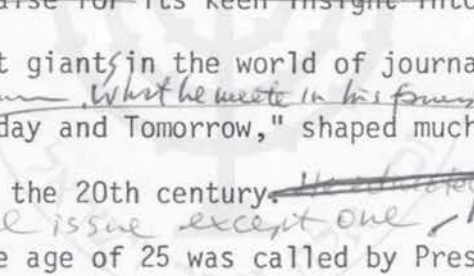 aise for its keen insight into
t giants in the world of journa
What he wrote in his
day and Tomorrow," shaped much
the 20th century.
e issue except one
e age of 25 was called by Pres